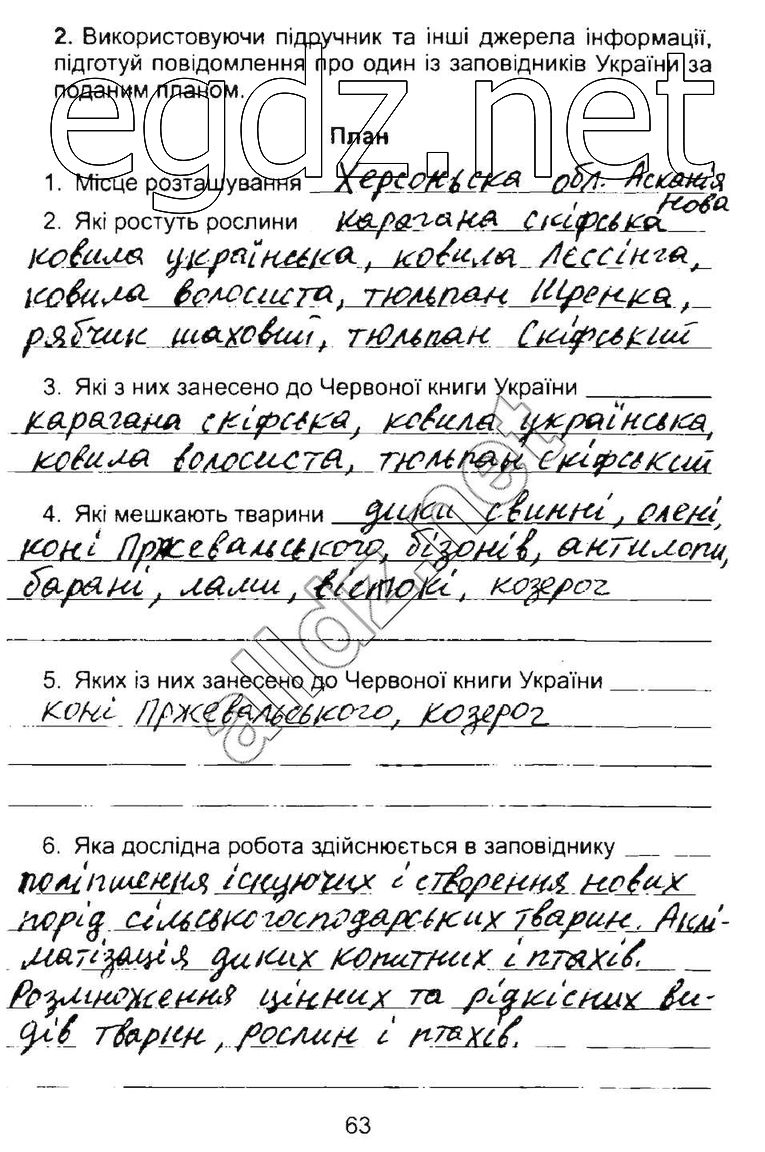 2. Використовуючи підручник та інші джерела інформації,
підготуй повідомлення про один із заповідників України за
поданим планом.
egdz.net
План
1. Місце розташування Херсоньска обл. Асканія
Нова
2. Які ростуть рослини карагана скіфська
ковила українська, ковила Лєссінга,
ковила волосиста, тюльпан Шренка,
рябчик шаховий, тюльпан Скіфський
3. Які з них занесено до Червоної книги України
карагана скіфська, ковила українська,
ковила волосиста, тюльпан скіфський
4. Які мешкають тварини дики свинні, олені,
коні Пржевальського, бізонів, антилопи,
барані, лами, козерог
alldz.net
5. Яких із них занесено до Червоної книги України
коні Пржевальського, козерог
6. Яка дослідна робота здійснюється в заповіднику
поліпшення існуючих і створення нових
порід сільськогосподарських тварин. Аклі-
матізація диких копитних і птахів.
Розмноження цінних та рідкісних ви-
дів тварин, рослин і птахів.
63